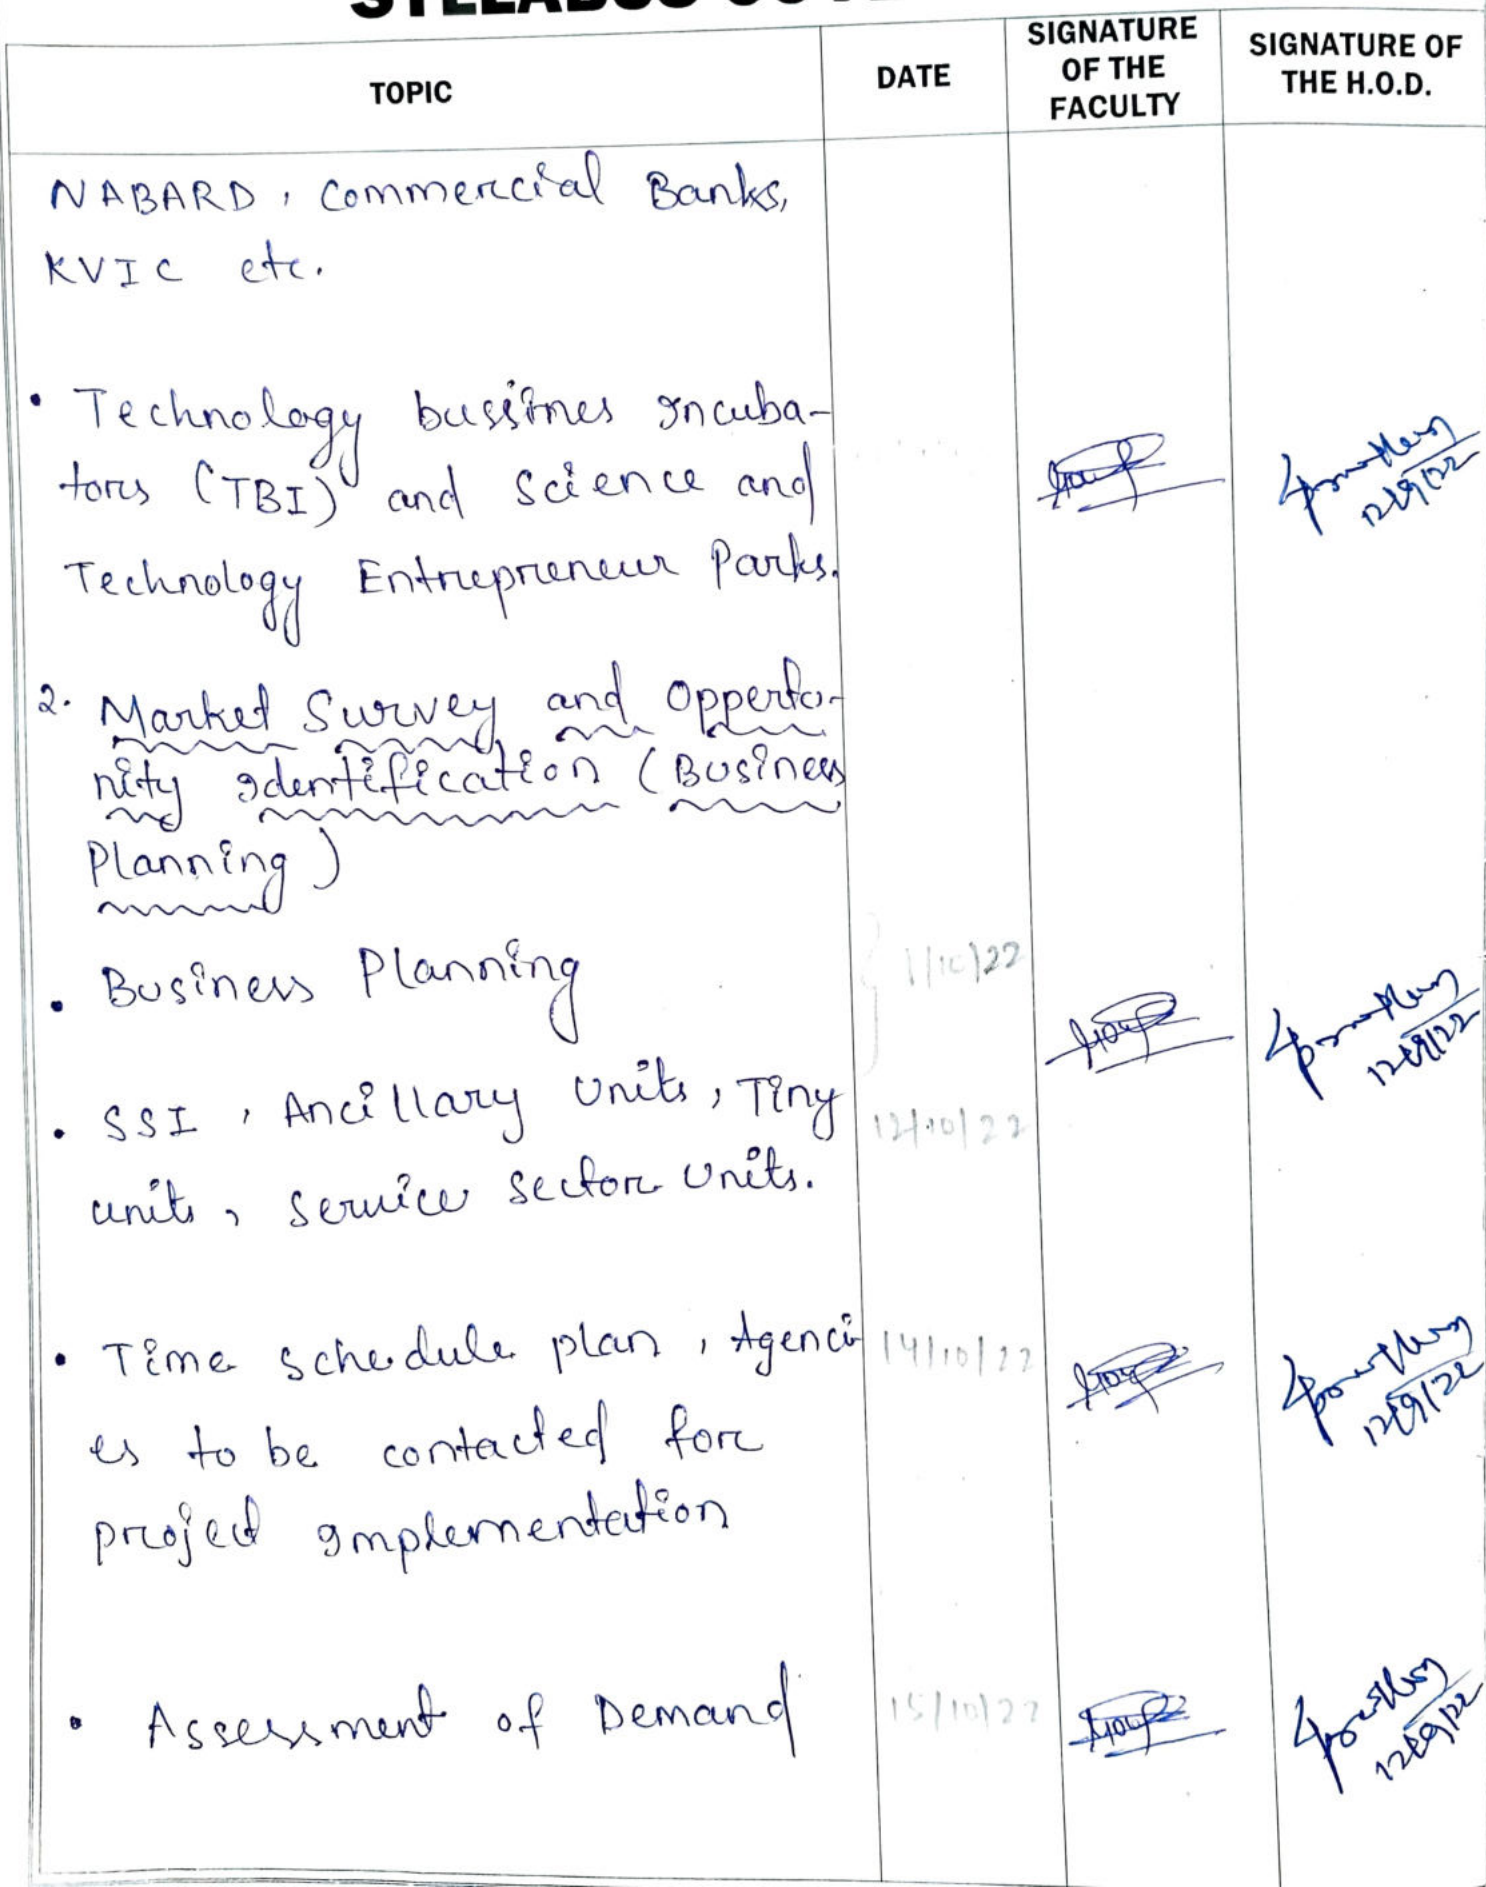 SYLLABUS
TOPIC
DATE
SIGNATURE
OF THE
FACULTY
SIGNATURE OF
THE H.O.D.
NABARD, Commercial Banks,
KVIC etc.
• Technology bussines Incuba-
tors (TBI) and Science and
Technology Entrepreneur Parks.
12/9/22
2. Market Survey and Opperto-
nity Identification (Business
Planning)
• Business Planning
1/10/22
12/9/22
• SSI, Ancillary Units, Tiny
units, Service Sector Units.
12/10/22
• Time schedule plan, Agenci
14/10/22
12/9/22
es to be contacted for
project Implementation
• Assessment of Demand
15/10/22
12/9/22